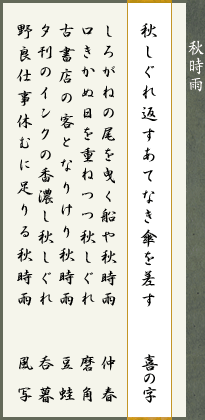 秋時雨
秋しぐれ返すあてなき傘を差す 喜の字
しろがねの尾を曳く船や秋時雨 仲春
口きかぬ日を重ねつつ秋しぐれ 磨角
古書店の客となりけり秋時雨 豆蛙
夕刊のインクの香濃し秋しぐれ 呑暮
野良仕事休むに足りる秋時雨 風写